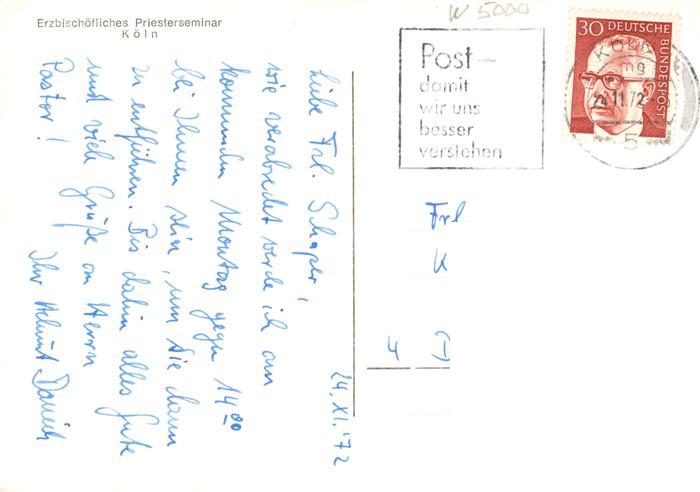 Erzbischöfliches Priesterseminar
Köln
W 5000
Post –
damit
wir uns
besser
verstehen
30 DEUTSCHE
BUNDESPOST
KÖLN
mg
24.11.72
5
24.XI.'72
Liebe Frl. Schaper,
wie verabredet werde ich am
kommenden Montag gegen 14 00
bei Ihnen sein, um Sie dann
zu entführen. Bis dahin alles Gute
und viele Grüße an Herrn
Pastor!
Ihr Helmut
Frl
K
4 D